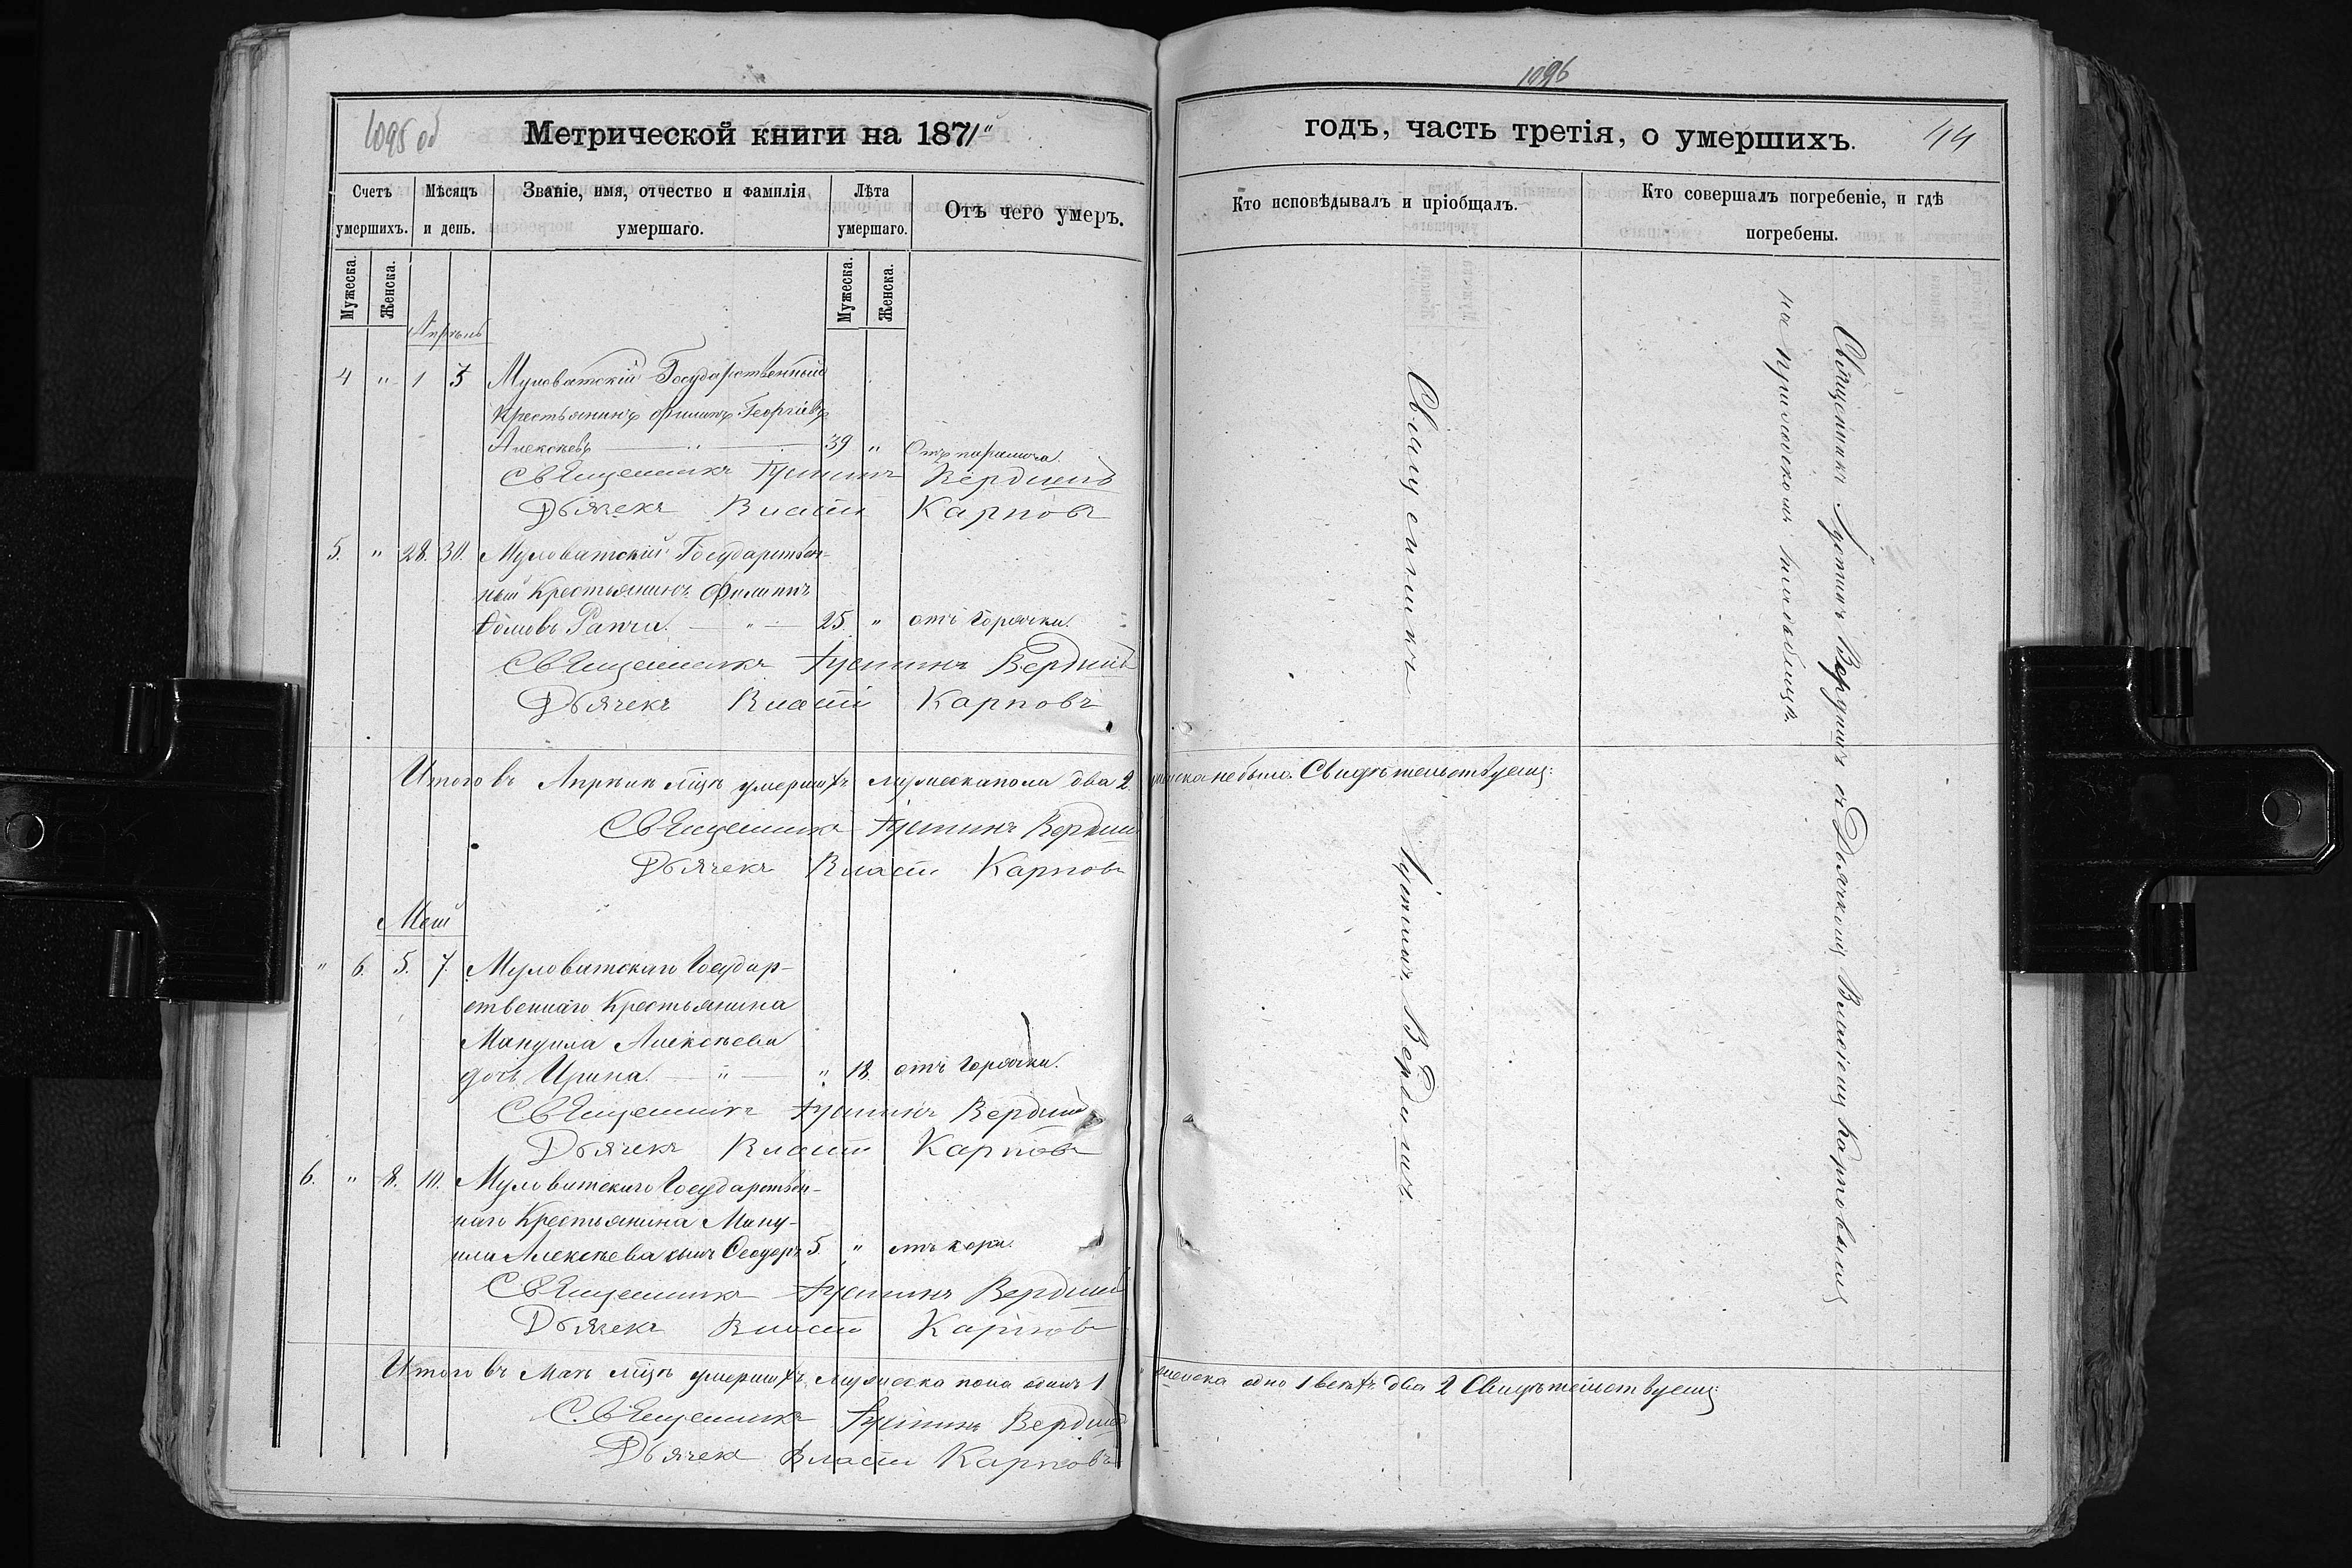 1095 об
Метрической книги на 1871"
Счетъ умершихъ.
Мѣсяцъ и день.
Званіе, имя, отчество и фамилія умершаго.
Лѣта умершаго.
Отъ чего умеръ.
Мужеска.
Женска.
Мужеска.
Женска.
Апрѣль
4 " 1 3 Муловатскій Государственный
Крестьянинъ Филипъ Георгіевъ
Алексѣевъ — " — 39 " Отъ паралича.
Священникъ Іустинъ Вердишъ
Дьячекъ Власій Карповъ
5. " 28. 30. Муловатскій Государствен-
ный Крестьянинъ Филиппъ
25. " отъ горячки.
Священникъ Іустинъ Вердишъ
Дьячекъ Власій Карповъ
Итого въ Апрѣлѣ мцѣ умершихъ мужеска пола два 2.
Священникъ Іустинъ Вердишъ
Дьячекъ Власій Карповъ
Маій
" 6. 5. 7. Муловатскаго Государ-
ственнаго Крестьянина
Мануила Алексѣева
дочь Ирина. — " — " 18. отъ горячки.
Священникъ Іустинъ Вердишъ
Дьячекъ Власій Карповъ
6. " 8. 10. Муловатскаго Государствен-
наго Крестьянина Ману-
ила Алексѣева сынъ Ѳеодоръ 5. " отъ кори.
Священникъ Іустинъ Вердишъ
Дьячекъ Власій Карповъ
Итого въ Маѣ мцѣ умершихъ мужеска пола одинъ 1
Священникъ Іустинъ Вердишъ
Дьячекъ Власій Карповъ
1096
годъ, часть третія, о умершихъ.
44
Кто исповѣдывалъ и пріобщалъ.
Кто совершалъ погребеніе, и гдѣ
погребены.
Священникъ Іустинъ Вердишъ.
Священникъ Іустинъ Вердишъ съ Дьячкомъ Власіемъ Карповымъ
на приходскомъ кладбищѣ.
не было. Свидѣтельствуемъ:
женска одно 1 всѣхъ два 2 Свидѣтельствуемъ: